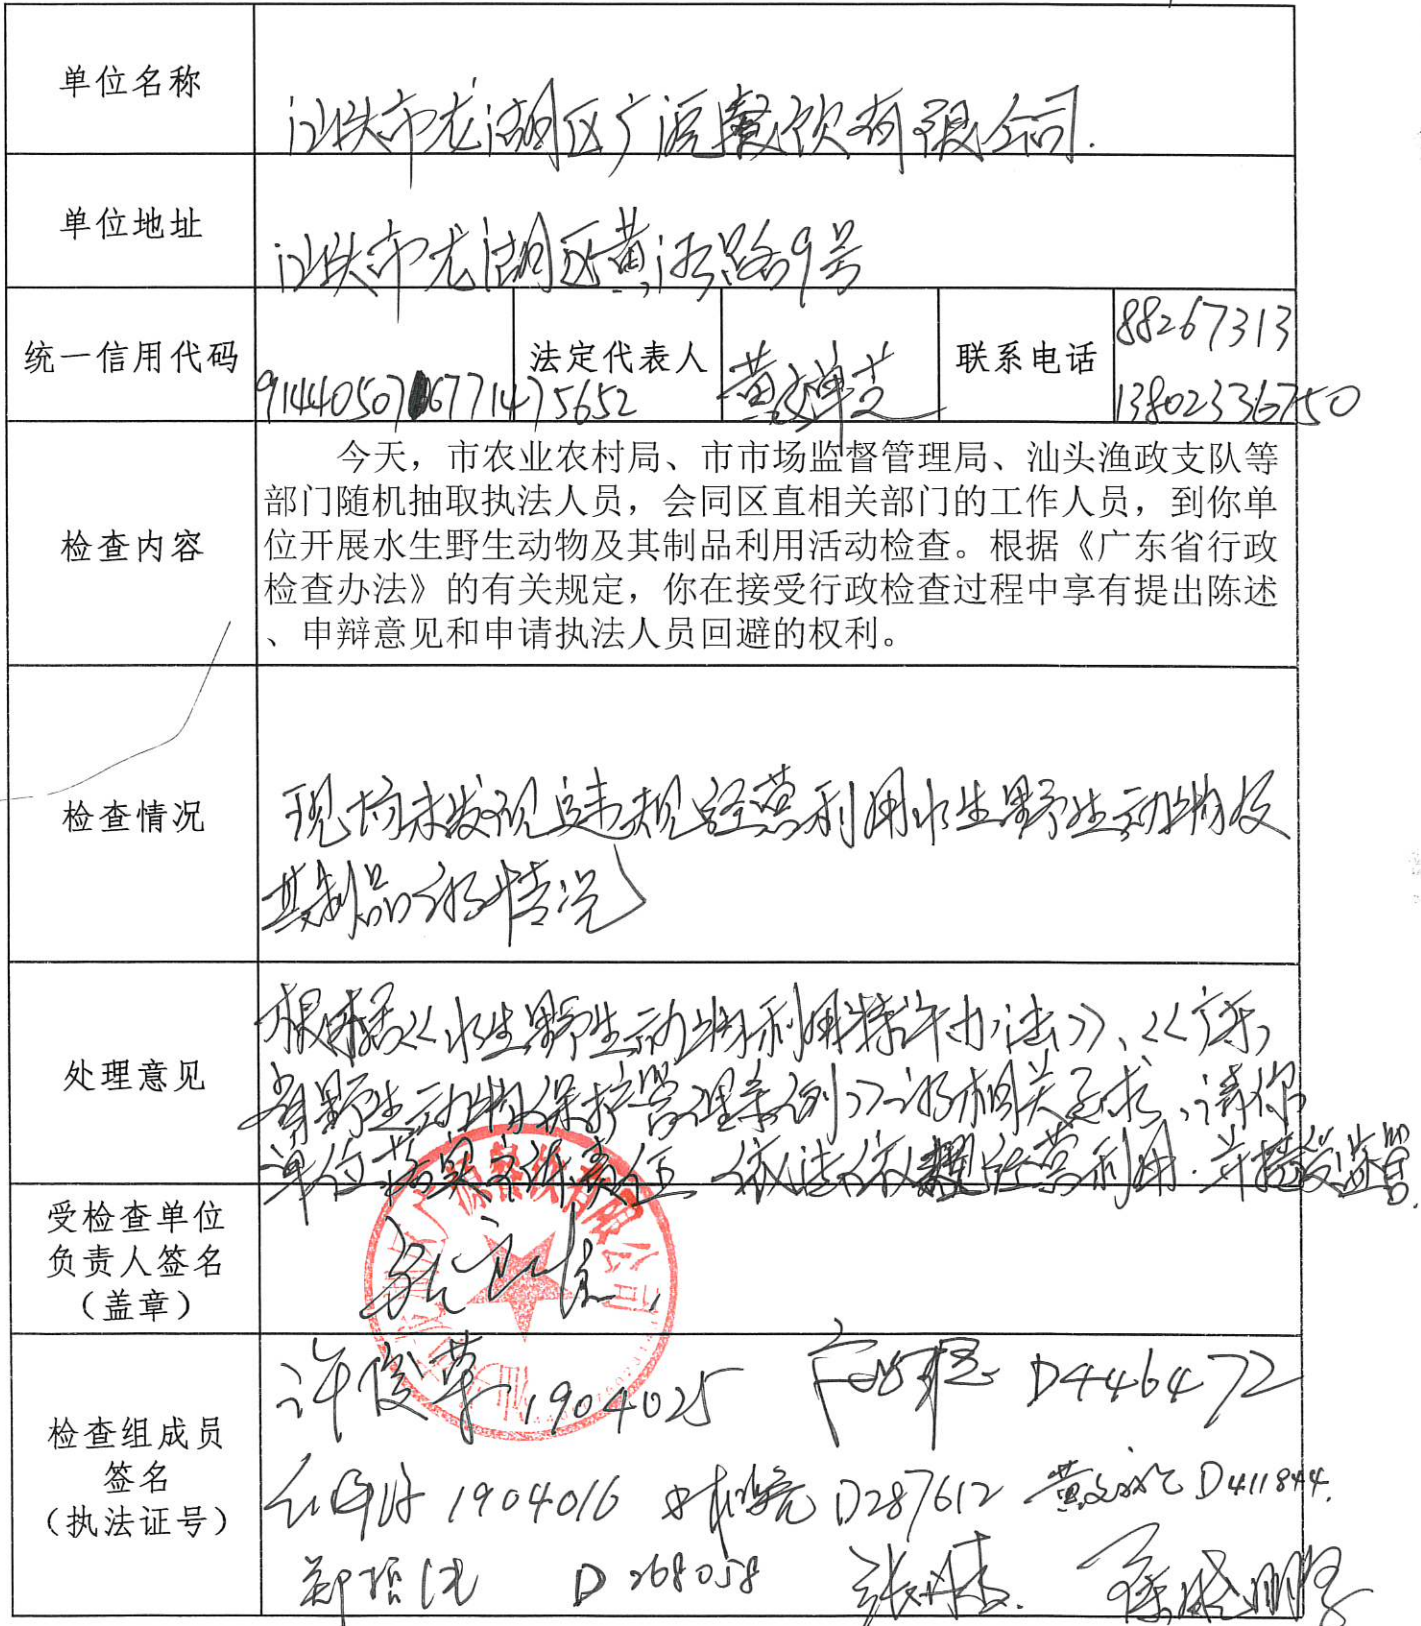 单位名称
汕头市龙湖区广源餐饮有限公司.
单位地址
汕头市龙湖区黄河路9号
统一信用代码
914405076771475652
法定代表人
黄文婵芝
联系电话
88267313
13802336750
检查内容
今天，市农业农村局、市市场监督管理局、汕头渔政支队等
部门随机抽取执法人员，会同区直相关部门的工作人员，到你单
位开展水生野生动物及其制品利用活动检查。根据《广东省行政
检查办法》的有关规定，你在接受行政检查过程中享有提出陈述
、申辩意见和申请执法人员回避的权利。
检查情况
现场未发现违规经营利用水生野生动物及
其制品的情况
处理意见
根据《水生野生动物利用特许办法》、《广东
省野生动物保护管理条例》的相关要求，请你
单位落实主体责任、依法依规经营利用.并接受监管.
受检查单位
负责人签名
（盖章）
广源餐饮有限公司
检查组成员
签名
（执法证号）
许俊苹 1904025 D446472
1904016 D287612 黄 D411844.
郑 D268058 张